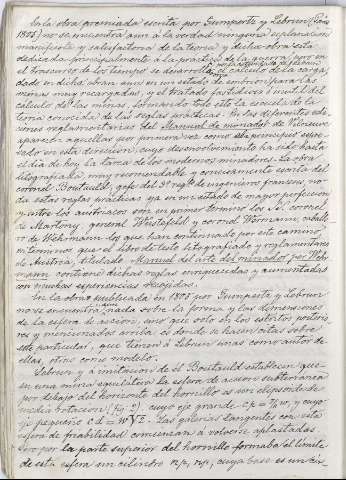 En la obra premiada escrita por Gumpertz y Lebrun (París
1805) no se encuentra aun á la verdad ninguna explanacion
manifiesta y satisfactoria de la teoria y dicha obra está
dedicada principalmente á la práctica de la guerra, pero en
el trascurso de los tiempos se desarrolla el calculo de la carga,
dado en dicha obra aun en un estado de embrion para las
minas muy recargadas, y el tratado fastidioso é inutil del
cálculo de las minas, formando todo esto la escuela de la
teoria conocida de las reglas prácticas. En las diferentes edi-
ciones reglamentarias del Manuel de minador de Villeneuve
aparecen aquellas por primera vez como
sado en esta direccion, cuyo desenvolvimiento ha sido hasta
el dia de hoy la tarea de los modernos minadores. La obra
litografiada, muy recomendable y concisamente escrita del
coronel Boutault, gefe del 3er regto de ingenieros franceses,
da estas reglas prácticas ya en un estado de mayor perfeccion
y entre los austriacos son en primer termino los S.S. coronel
de Martony, general Wüstefeld y coronel Wörmann, caballe
ro de Wehrmann los que han continuado por este camino,
en terminos que el libro de texto litografiado y reglamentario
de Austria, titulado Manual del arte del minador por Wehr
mann contiene dichas reglas enriquecidas y aumentadas
con muchas esperiencias recogidas.
En la obra publicada en 1805 por Gumpertz y Lebrun
no se encuentra nada sobre la forma y las dimensiones
de la esfera de accion, sino que solo en los escritos posterio
res y mencionados arriba es donde se hacen citas sobre
este particular, que tienen á Lebrun unas como autor de
ellas, otras como modelo.
Lebrun y á imitacion de él Boutault establecen que
en una mina equilatera la esfera de accion subterranea
por debajo del horizonte del hornillo es un elipsoide de
media rotacion (Fig. 2), cuyo eje grande cp = 7/4 w, y cuyo
eje pequeño cd = w√2. Las galerias tangentes con esta
esfera de friabilidad comienzan á volverse aplastadas.
Pero por la parte superior del hornillo formaba el limite
de esta esfera un cilindro npn,n, cuya base es un cír-